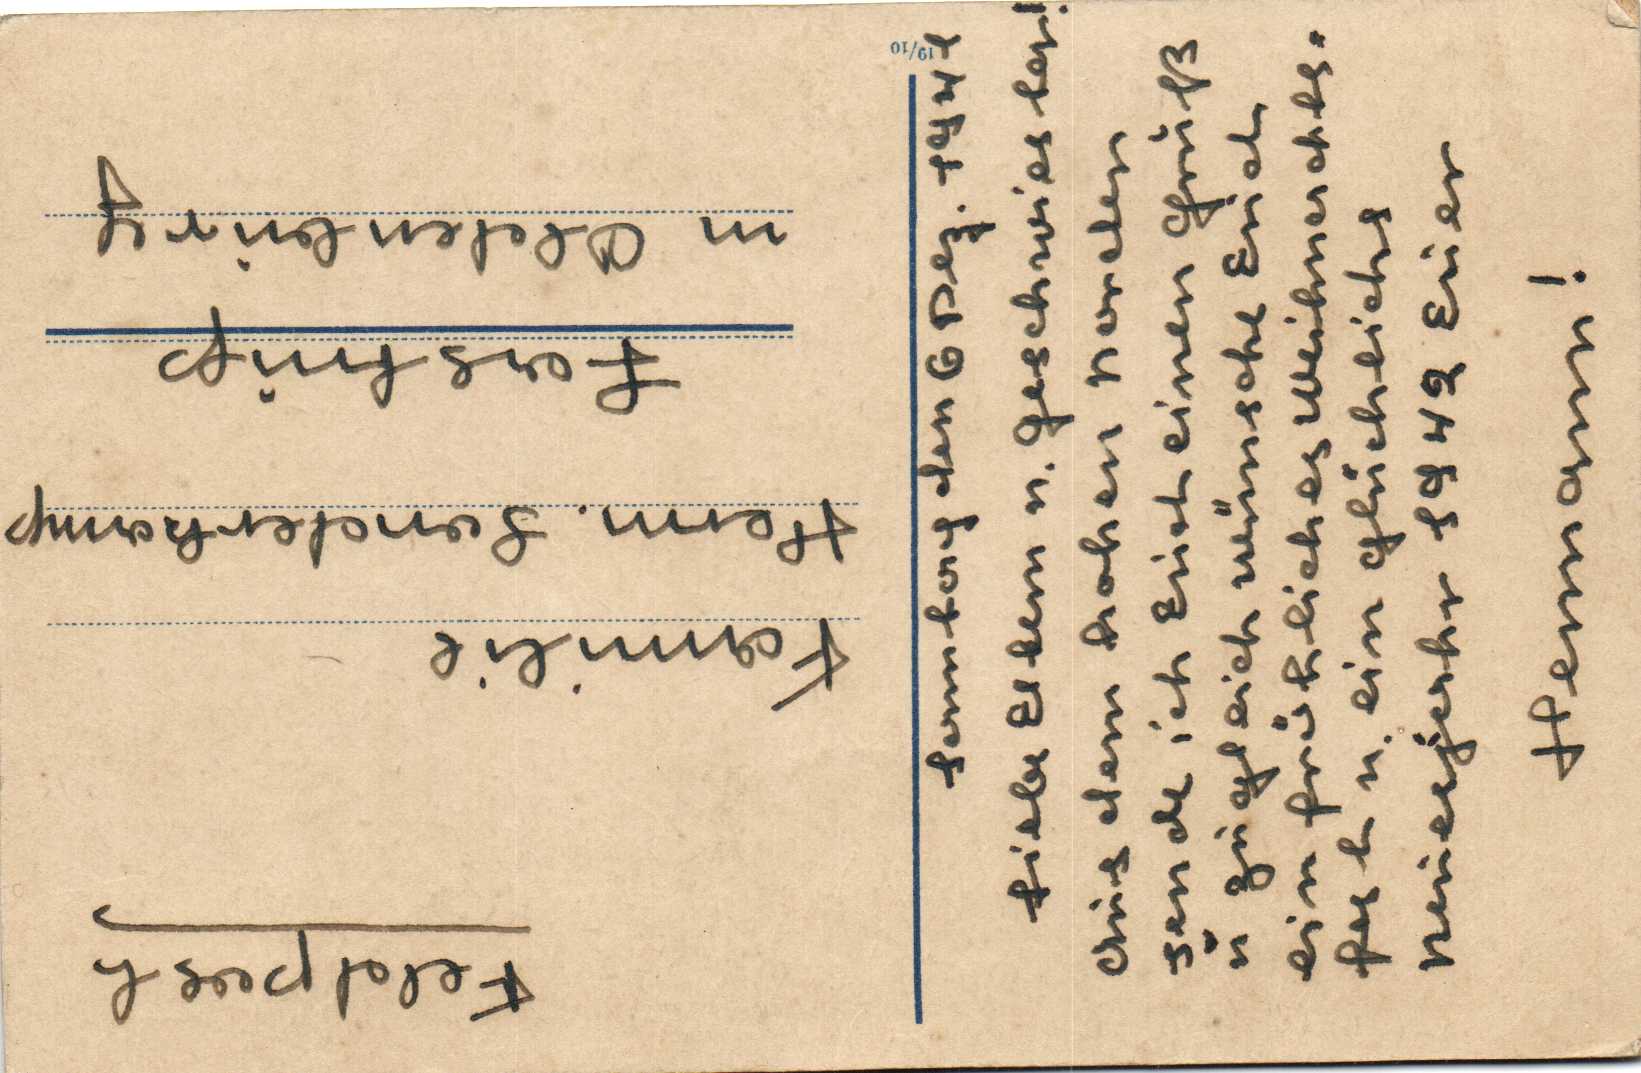 Feldpost
Familie
Herm. Sanderkamp
Lastrup
in Oldenburg
19/10
Samstag den 6 Dez. 1941
Liebe Eltern u. Geschwister!
Aus dem hohen Norden
sende ich Euch einen Gruß
u zugleich wünsche Euch
ein fröhliches Weihnachts-
fest u. ein glückliches
Neuesjahr 1942 Euer
Hermann!